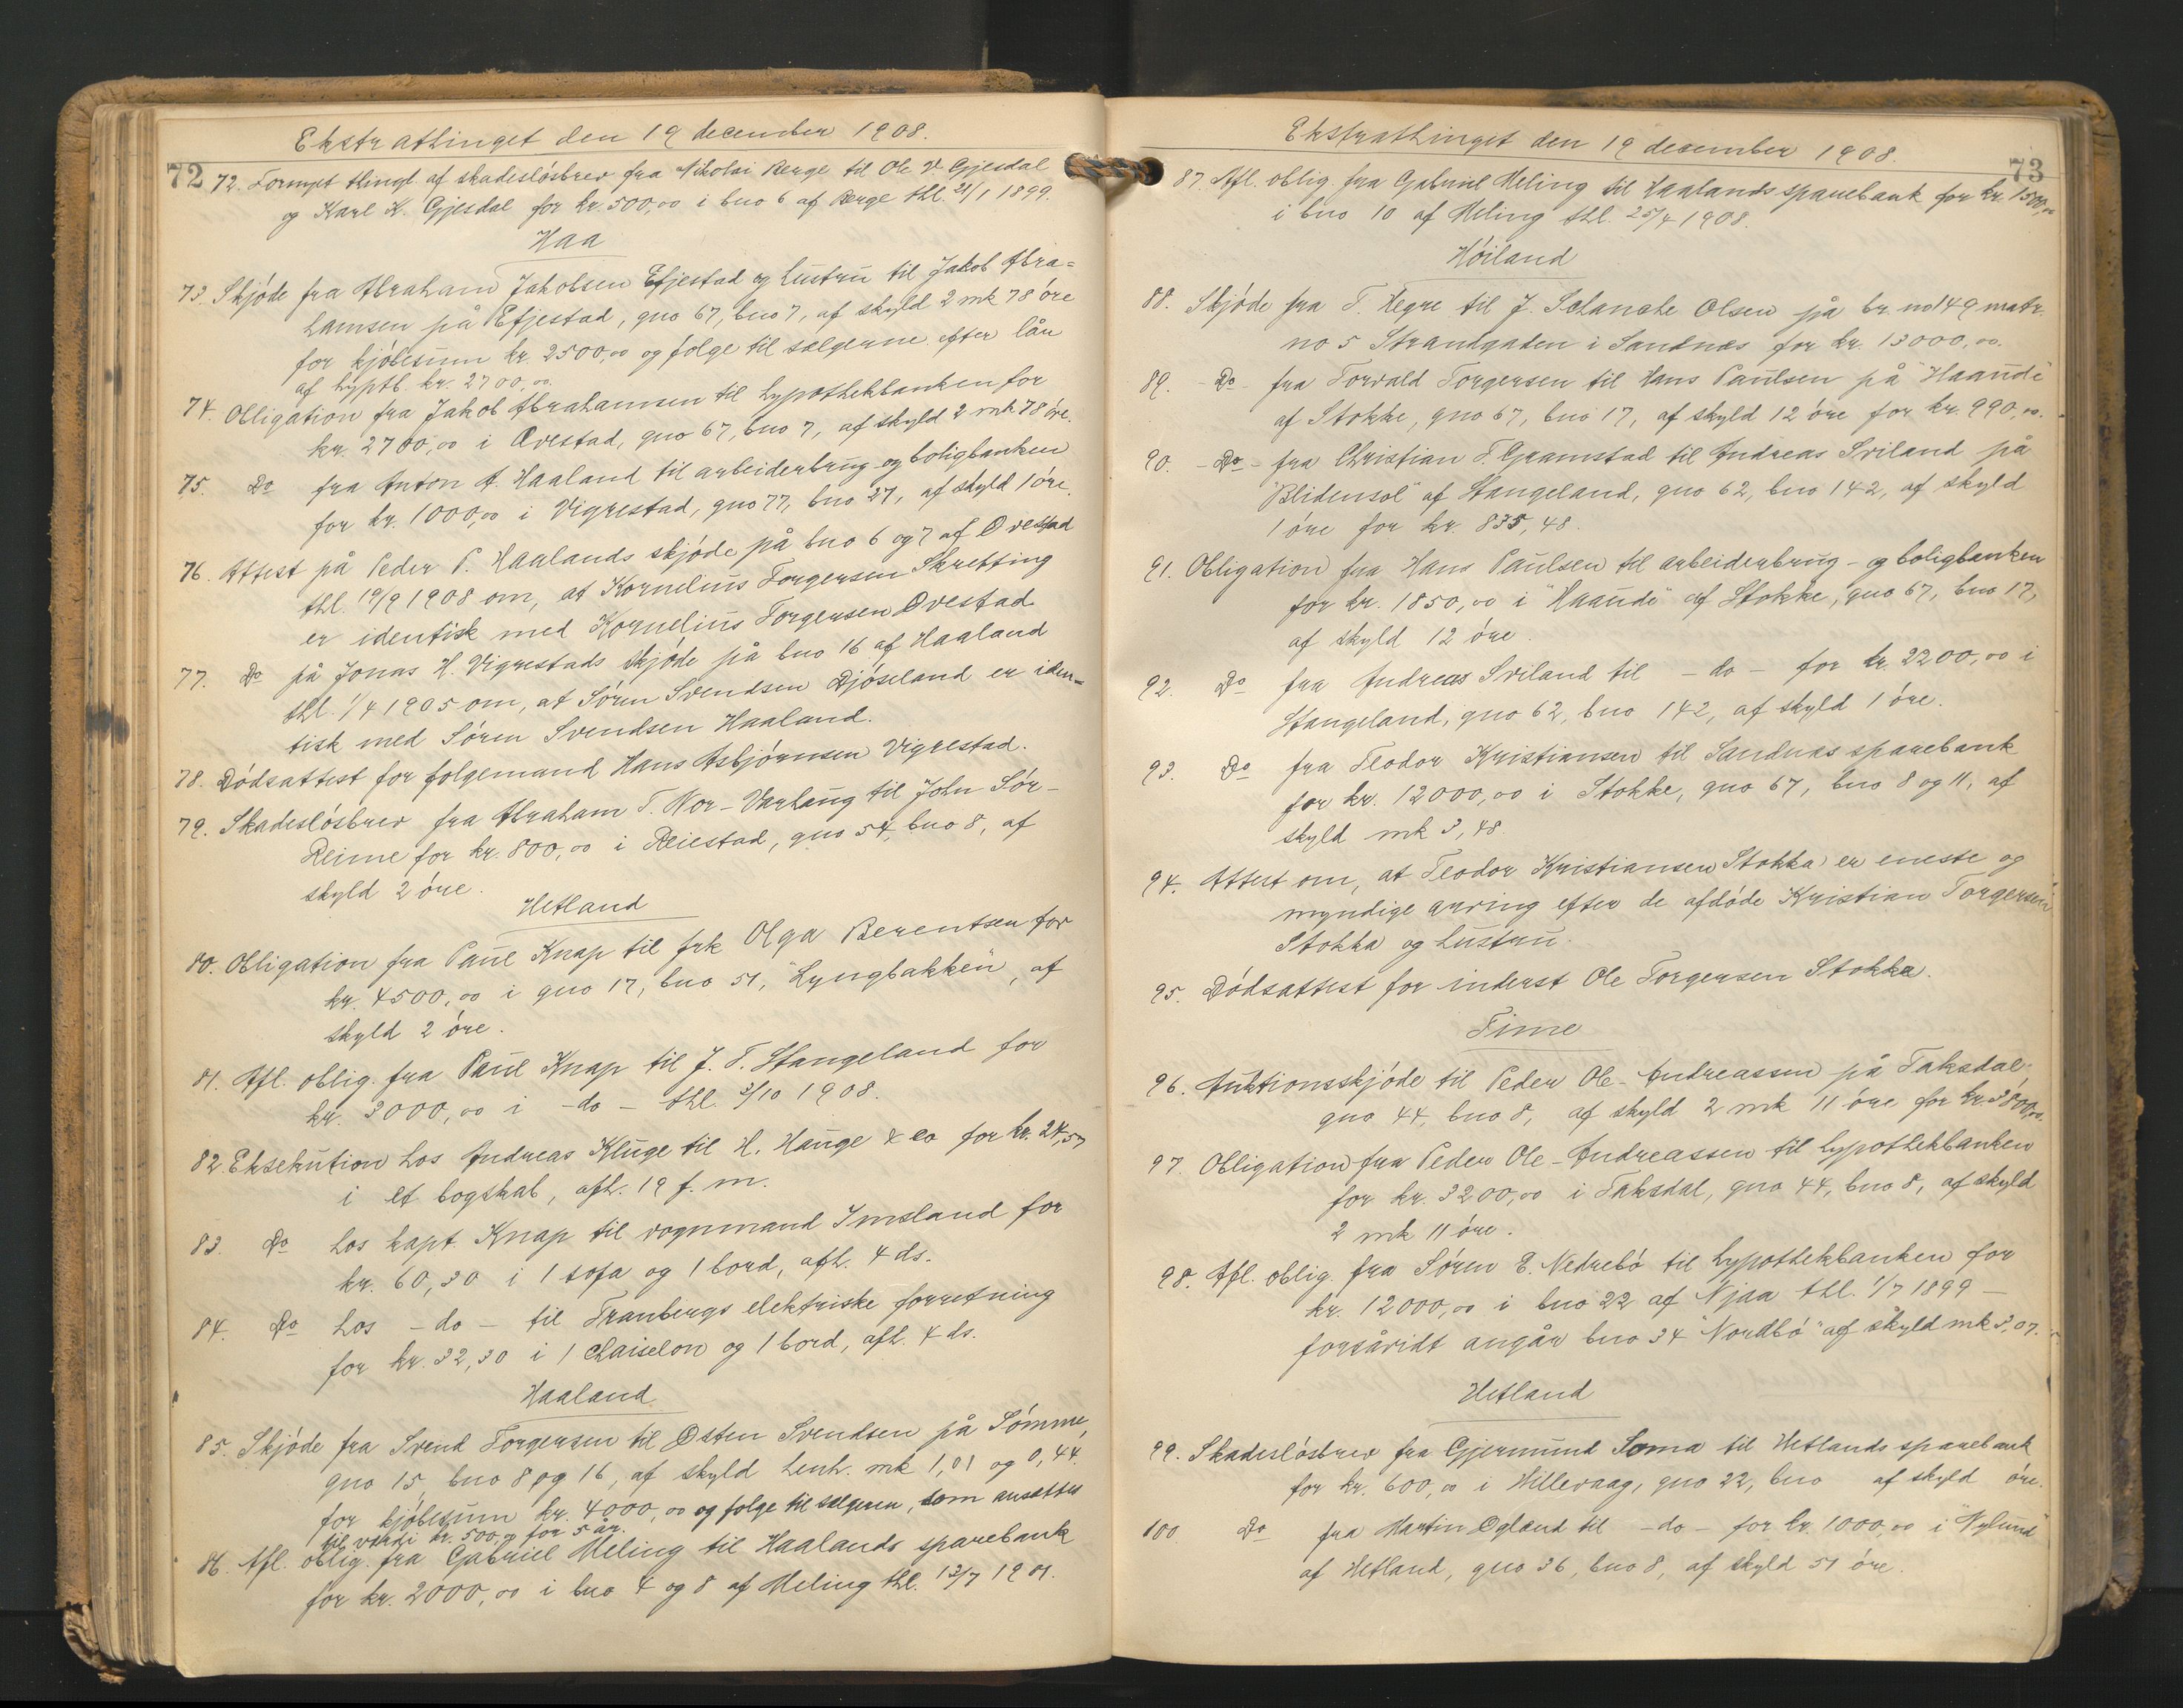 Ekstrathinget den 19 december 1908.
72
72. Fornyet thingl. af skadesløsbrev fra Nikolai Berge til Ole V. Gjesdal
og Karl K. Gjesdal for kr. 500,00 i bno 6 af Berge thl. 21/1 1899.
Haa
73. Skjøde fra Abraham Jakobsen Efjestad og hustru til Jakob Abra=
hamsen på Efjestad, gno 67, bno 7, af skyld 2 mk 78 øre
for kjøbesum kr. 2500,00 og følge til sælgerne efter lån
af hyptb. kr. 2700,00.
74. Obligation fra Jakob Abrahamsen til hypothekbanken for
kr. 2700,00 i Ovestad, gno 67, bno 7, af skyld 2 mk 78 øre.
75. Do fra Anton A. Haaland til arbeiderbrug- og boligbanken
for kr. 1000,00 i Vigrestad, gno 77, bno 27, af skyld 1 øre.
76. Attest på Peder P. Haalands skjøde på bno 6 og 7 af Ovestad
thl. 19/9 1908 om, at Kornelius Torgersen Skretting
er identisk med Kornelius Torgersen Ovestad.
77. Do på Jonas H. Vigrestads skjøde på bno 16 af Haaland
thl. 1/4 1905 om, at Søren Svendsen Djøseland er iden-
tisk med Søren Svendsen Haaland.
78. Dødsattest for følgemand Hans Asbjørnsen Vigrestad.
79. Skadesløsbrev fra Abraham T. Nor-Varhaug til John Sør-
Reime for kr. 800,00 i Reiestad, gno 54, bno 8, af
skyld 2 øre.
Hetland
80. Obligation fra Paul Knap til frk Olga Berentsen for
kr. 4500,00 i gno 17, bno 51, "Lyngbakken", af
skyld 2 øre.
81. Afl. oblig. fra Paul Knap til J. T. Stangeland for
kr. 3000,00 i -do- thl. 3/10 1908.
82 Eksekution hos Andreas Kluge til H. Hauge & co for kr. 24,57
i et bogskab, afh. 19 f. m.
83. Do hos kapt. Knap til vognmand Imsland for
kr. 60,30 i 1 sofa og 1 bord, afh. 4 ds.
84. Do hos -do- til Tranbergs elektriske forretning
for kr. 32,30 i 1 chaiselon og 1 bord, afh. 4 ds.
Haaland
85. Skjøde fra Svend Torgersen til Østen Svendsen på Sømme,
gno 15, bno 8 og 16, af skyld henh. mk 1,01 og 0,44.
for kjøbesum kr. 4000,00 og følge til sælgeren, som ansættes
til værdi kr. 500,00 for 5 år.
86. Afl. oblig. fra Gabriel Meling til Haalands sparebank
for kr. 2000,00 i bno 4 og 8 af Meling thl. 13/7 1901.
Ekstrathinget den 19 december 1908.
73
87. Afl. oblig. fra Gabriel Meling til Haalands sparebank for kr. 1500,00
i bno 10 af Meling thl. 25/4 1908.
Høiland
88. Skjøde fra T. Hegre til J. Schanche Olsen på br. no 149 matr.
no 5 Strandgaden i Sandnæs for kr. 13000,00.
89. -Do- fra Torvald Torgersen til Hans Paulsen på "Haaude"
af Stokke, gno 67, bno 17, af skyld 12 øre for kr. 990,00.
90. -Do- fra Christian T. Gramstad til Andreas Sviland på
"Blidensol" af Stangeland, gno 62, bno 142, af skyld
1 øre for kr. 835,48.
91. Obligation fra Hans Paulsen til arbeiderbrug- og boligbanken
for kr. 1850,00 i "Haaude" af Stokke, gno 67, bno 17,
af skyld 12 øre.
92. Do fra Andreas Sviland til -do- for kr. 2200,00 i
Stangeland, gno 62, bno 142, af skyld 1 øre.
93. Do fra Teodor Kristiansen til Sandnæs sparebank
for kr. 12000,00 i Stokke, gno 67, bno 8 og 11, af
skyld mk 3,48.
94. Attest om, at Teodor Kristiansen Stokka er eneste og
myndige arving efter de afdøde Kristian Torgersen
Stokka og hustru.
95. Dødsattest for inderst Ole Torgersen Stokka.
Time
96. Auktionsskjøde til Peder Ole-Andreassen på Taksdal.
gno 44, bno 8, af skyld 2 mk 11 øre for kr. 3800,00.
97. Obligation fra Peder Ole-Andreassen til hypothekbanken
for kr. 3200,00 i Taksdal, gno 44, bno 8, af skyld
2 mk 11 øre.
98. Afl. oblig. fra Søren E. Nedrebø til hypothekbanken for
kr. 12000,00 i bno 22 af Njaa thl. 1/7 1899 -
forsåvidt angår bno 34 "Nordbø" af skyld mk 3,07.
Hetland
99. Skadesløsbrev fra Gjermund Soma til Hetlands sparebank
for kr. 600,00 i Hillevaag, gno 22, bno af skyld øre.
100 Do fra Martin Ogland til -do- for kr. 1000,00 i "Nylund"
af Hetland, gno 36, bno 8, af skyld 51 øre.